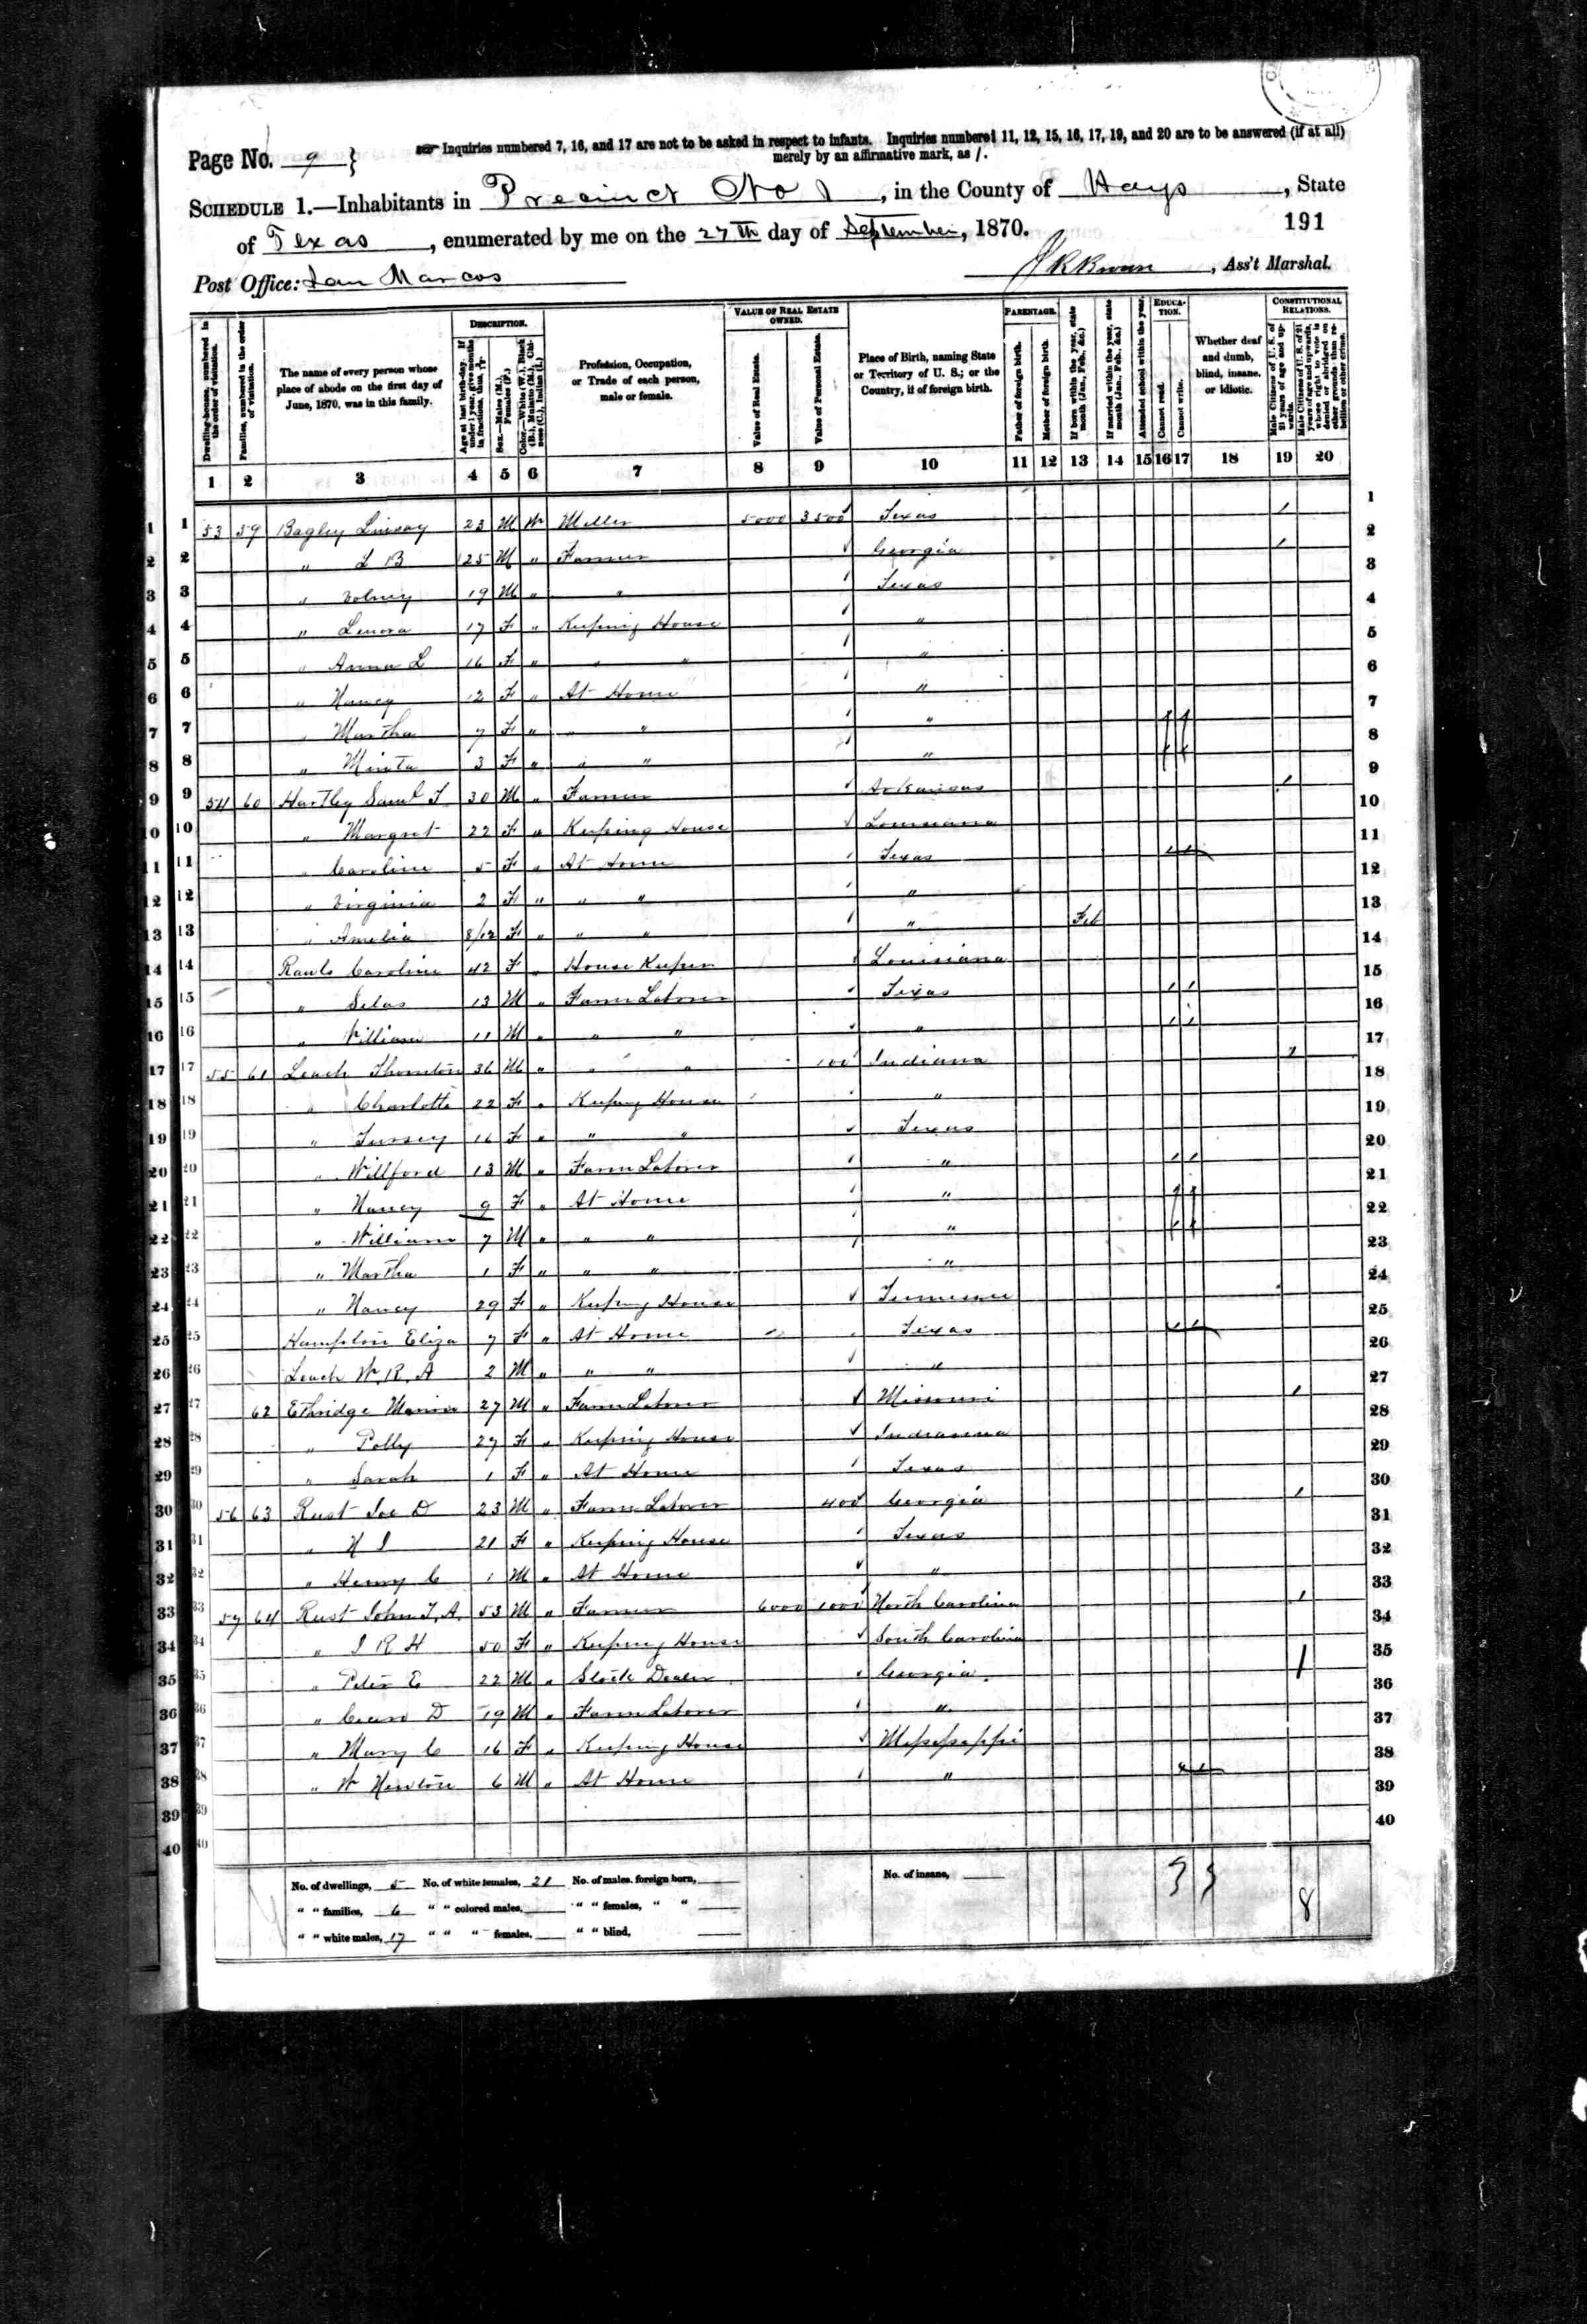 Page No. 9 }
Inquiries numbered 7, 16, and 17 are not to be asked in respect to infants. Inquiries numbered 11, 12, 15, 16, 17, 19, and 20 are to be answered (if at all)
merely by an affirmative mark, as /.
SCHEDULE 1.—Inhabitants in Precinct No 1, in the County of Hays, State
of Texas, enumerated by me on the 27th day of September, 1870. 191
Post Office: San Marcos , Ass't Marshal.
DESCRIPTION. VALUE OF REAL ESTATE OWNED. PARENTAGE. EDUCATION. CONSTITUTIONAL RELATIONS.
Dwelling-houses, numbered in the order of visitation.
Families, numbered in the order of visitation.
The name of every person whose place of abode on the first day of June, 1870, was in this family.
Age at last birth-day. If under 1 year, give months in fractions, thus, 3/12
Sex.—Males (M.), Females (F.)
Color.—White (W.), Black (B.), Mulatto (M.), Chinese (C.), Indian (I.)
Profession, Occupation, or Trade of each person, male or female.
Value of Real Estate.
Value of Personal Estate.
Place of Birth, naming State or Territory of U. S.; or the Country, if of foreign birth.
Father of foreign birth.
Mother of foreign birth.
If born within the year, state month (Jan., Feb., &c.)
If married within the year, state month (Jan., Feb., &c.)
Attended school within the year.
Cannot read.
Cannot write.
Whether deaf and dumb, blind, insane, or idiotic.
Male Citizens of U. S. of 21 years of age and upwards.
Male Citizens of U. S. of 21 years of age and upwards, whose right to vote is denied or abridged on other grounds than rebellion or other crime.
1 2 3 4 5 6 7 8 9 10 11 12 13 14 15 16 17 18 19 20
1 1 53 59 Bagley Linsay 23 M W Miller 5000 3500 Texas / 1
2 2 " L B 25 M " Farmer Georgia / 2
3 3 " Volney 19 M " " Texas 3
4 4 " Lenora 17 F " Keeping House " 4
5 5 " Anna L 16 F " " " " 5
6 6 " Nancy 12 F " At Home " 6
7 7 " Martha 7 F " " " " / / 7
8 8 " Minta 3 F " " " " 8
9 9 54 60 Hartley Saml T 30 M " Farmer Arkansas / 9
10 10 " Margret 22 F " Keeping House Louisiana 10
11 11 " Caroline 5 F " At Home Texas 11
12 12 " Virginia 2 F " " " " 12
13 13 " Amelia 8/12 F " " " " Feb 13
14 14 Rauls Caroline 42 F " House Keeper Louisiana 14
15 15 " Selas 13 M " Farm Laborer Texas / / 15
16 16 " William 11 M " " " " / / 16
17 17 55 61 Leach Thornton 36 M " " " 100 Indiana / 17
18 18 " Charlotte 22 F " Keeping House " 18
19 19 " 16 F " " " Texas 19
20 20 " Willford 13 M " Farm Laborer " / / 20
21 21 " Nancy 9 F " At Home " / / 21
22 22 " William 7 M " " " " / / 22
23 23 " Martha 1 F " " " " 23
24 24 " Nancy 29 F " Keeping House Tennessee 24
25 25 Hampton Eliza 7 F " At Home Texas 25
26 26 Leach W. R. A 2 M " " " " 26
27 27 62 Ethridge 27 M " Farm Laborer Missouri / 27
28 28 " Polly 27 F " Keeping House Indianna 28
29 29 " Sarah 1 F " At Home Texas 29
30 30 56 63 Rust Joe D 23 M " Farm Laborer 400 Georgia / 30
31 31 " 21 F " Keeping House Texas 31
32 32 " Henry C 1 M " At Home " 32
33 33 57 64 Rust John T. A. 53 M " Farmer 6000 1000 North Carolina / 33
34 34 " I R H 50 F " Keeping House South Carolina 34
35 35 " Peter E 22 M " Stock Dealer Georgia / 35
36 36 " D 19 M " Farm Laborer " 36
37 37 " Mary C 16 F " Keeping House Missisippi 37
38 38 " W Newton 6 M " At Home " 38
39 39 39
40 40 40
No. of dwellings, 5 No. of white females, 21 No. of males, foreign born, No. of insane, 9 9 8
" " families, 6 " " colored males, " " females, " "
" " white males, 17 " " " females, " " blind,